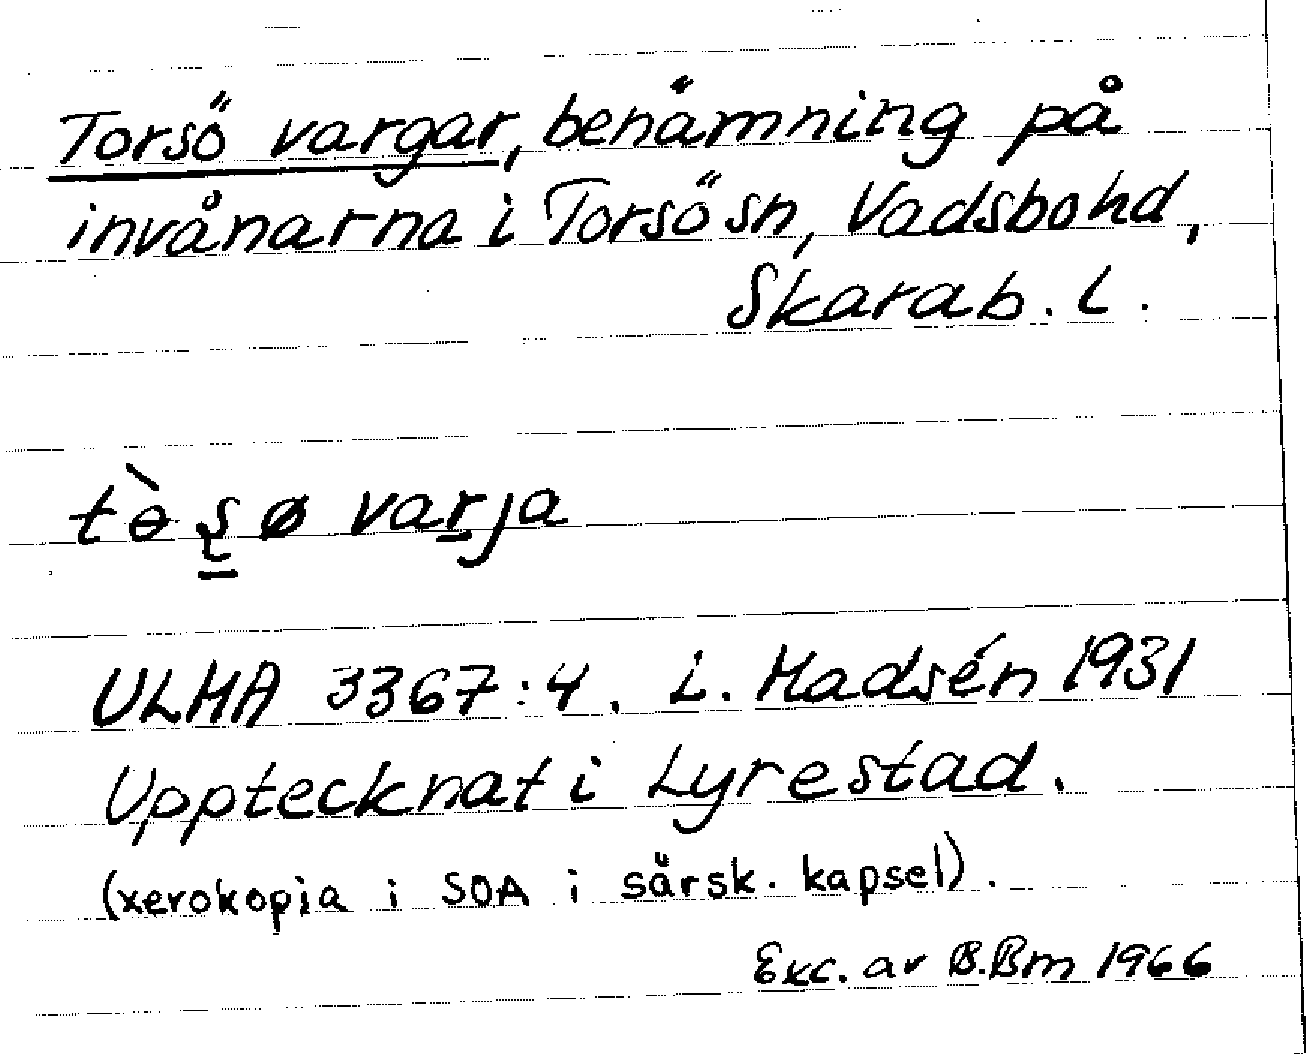 Torsö vargar, benämning på
invånarna i Torsö sn, Vadsbo hd,
Skarab. l.
tɵ̀ ʂ ø varja
ULMA 3367:4. L. Madsén 1931
Upptecknat i Lyrestad.
(xerokopia i SOA i särsk. kapsel).
Exc. av B.Bm 1966